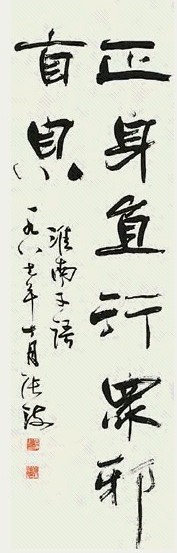 正身直行眾邪
自息
淮南子語
一九八七年十月张